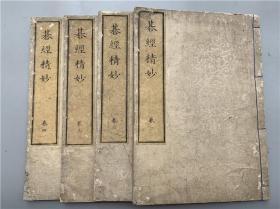 碁經精妙
卷
碁經精妙
卷
碁經精妙
卷
碁經精妙
卷四